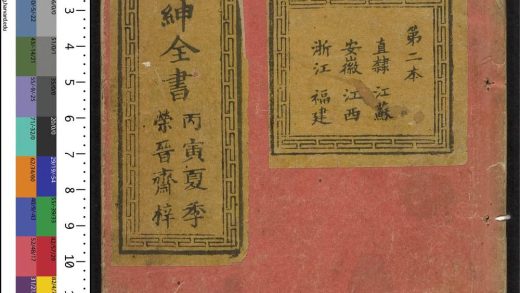 第二本
直隸 江蘇
安徽 江西
浙江 福建
紳全書
丙寅夏季
榮晉齋梓
3
4
5
6
7
8
9
10